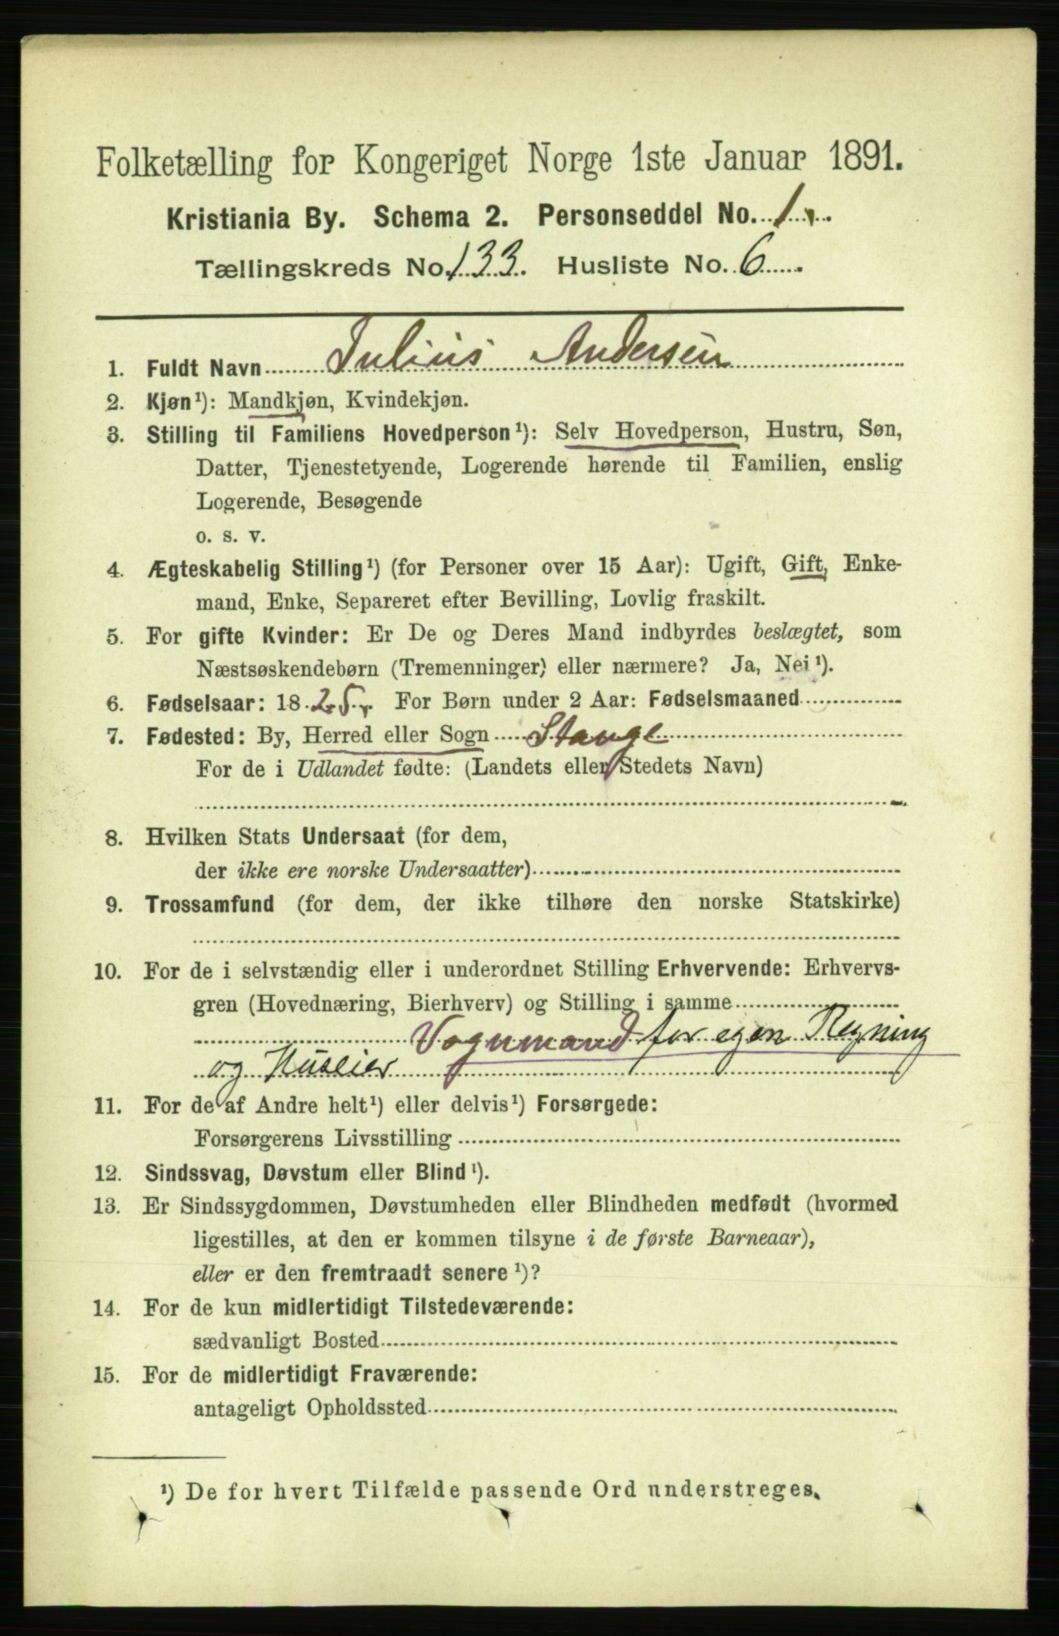 Folketælling for Kongeriget Norge 1ste Januar 1891.
Kristiania By. Schema 2. Personseddel No. 1.
Tællingskreds No. 133. Husliste No. 6
1. Fuldt Navn Julius Andersen
2. Kjøn¹): Mandkjøn, Kvindekjøn.
3. Stilling til Familiens Hovedperson¹): Selv Hovedperson, Hustru, Søn,
Datter, Tjenestetyende, Logerende hørende til Familien, enslig
Logerende, Besøgende
o. s. v.
4. Ægteskabelig Stilling¹) (for Personer over 15 Aar): Ugift, Gift, Enke-
mand, Enke, Separeret efter Bevilling, Lovlig fraskilt.
5. For gifte Kvinder: Er De og Deres Mand indbyrdes beslægtet, som
Næstsøskendebørn (Tremenninger) eller nærmere? Ja, Nei¹).
6. Fødselsaar: 1825. For Børn under 2 Aar: Fødselsmaaned
7. Fødested: By, Herred eller Sogn Stange
For de i Udlandet fødte: (Landets eller Stedets Navn)
8. Hvilken Stats Undersaat (for dem,
der ikke ere norske Undersaatter)
9. Trossamfund (for dem, der ikke tilhøre den norske Statskirke)
10. For de i selvstændig eller i underordnet Stilling Erhvervende: Erhvervs-
gren (Hovednæring, Bierhverv) og Stilling i samme
Vognmand for egen Regning
og Huseier
11. For de af Andre helt¹) eller delvis¹) Forsørgede:
Forsørgerens Livsstilling
12. Sindssvag, Døvstum eller Blind¹).
13. Er Sindssygdommen, Døvstumheden eller Blindheden medfødt (hvormed
ligestilles, at den er kommen tilsyne i de første Barneaar),
eller er den fremtraadt senere¹)?
14. For de kun midlertidigt Tilstedeværende:
sædvanligt Bosted
15. For de midlertidigt Fraværende:
antageligt Opholdssted
¹) De for hvert Tilfælde passende Ord understreges.